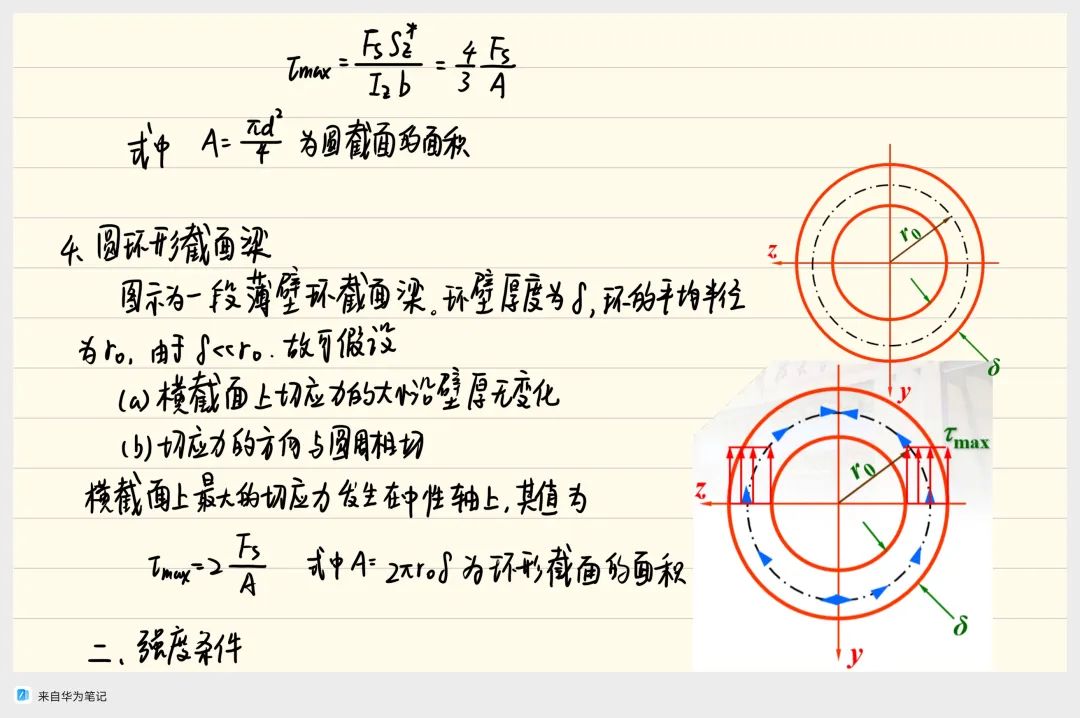 τmax = FsSz* / Izb = 4/3 Fs/A
式中 A = πd²/4 为圆截面的面积
4、圆环形截面梁
图示为一段薄壁环截面梁。环壁厚度为δ，环的平均半径
为r0，由于δ<<r0．故可假设
(a) 横截面上切应力的大小沿壁厚无变化
(b) 切应力的方向与圆周相切
横截面上最大的切应力发生在中性轴上，其值为
τmax = 2 Fs/A 式中 A = 2πr0δ 为环形截面的面积
二、强度条件
z
r0
δ
y
τmax
z
r0
δ
y
来自华为笔记